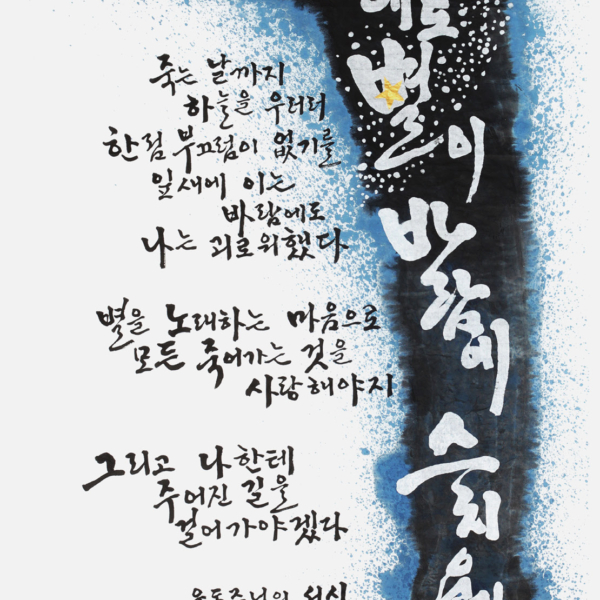 죽는 날까지
하늘을 우러러
한점 부끄럼이 없기를
잎새에 이는
바람에도
나는 괴로워했다
별을 노래하는 마음으로
모든 죽어가는 것을
사랑해야지
그리고 나한테
주어진 길을
걸어가야겠다
윤동주님의 서시
별이
바람에
스치